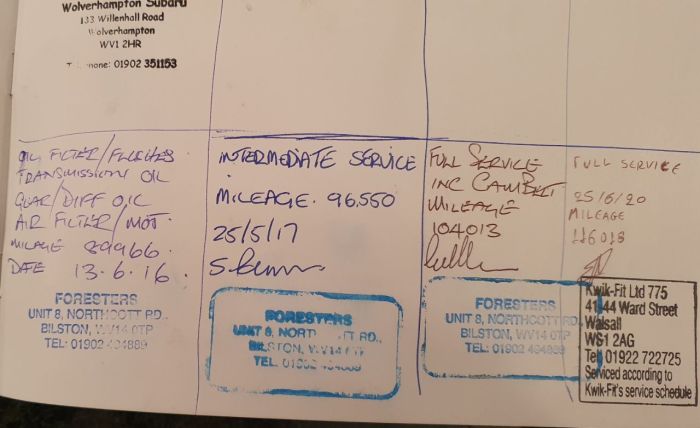 Wolverhampton Subaru
133 Willenhall Road
Wolverhampton
WV1 2HR
Telephone: 01902 351153
OIL FILTER/FLUSHES
TRANSMISSION OIL
GEAR/DIFF OIL
AIR FILTER/MOT.
MILAGE 89966.
DATE 13.6.16.
FORESTERS
UNIT 8, NORTHCOTT RD.,
BILSTON, WV14 0TP
TEL: 01902 494889
INTERMEDIATE SERVICE
MILEAGE. 96,550
25/5/17
FORESTERS
UNIT 8, NORTH TT RD.,
BILSTON, WV14
TEL: 01902
FULL SERVICE
INC CAMBELT
MILEAGE
104013
FORESTERS
UNIT 8, NORTHCOTT RD.,
BILSTON, WV14 0TP
TEL: 01902 494889
FULL SERVICE
25/6/20
MILEAGE
116018
Kwik-Fit Ltd 775
41-44 Ward Street
Walsall
WS1 2AG
Tel: 01922 722725
Serviced according to
Kwik-Fit's service schedule